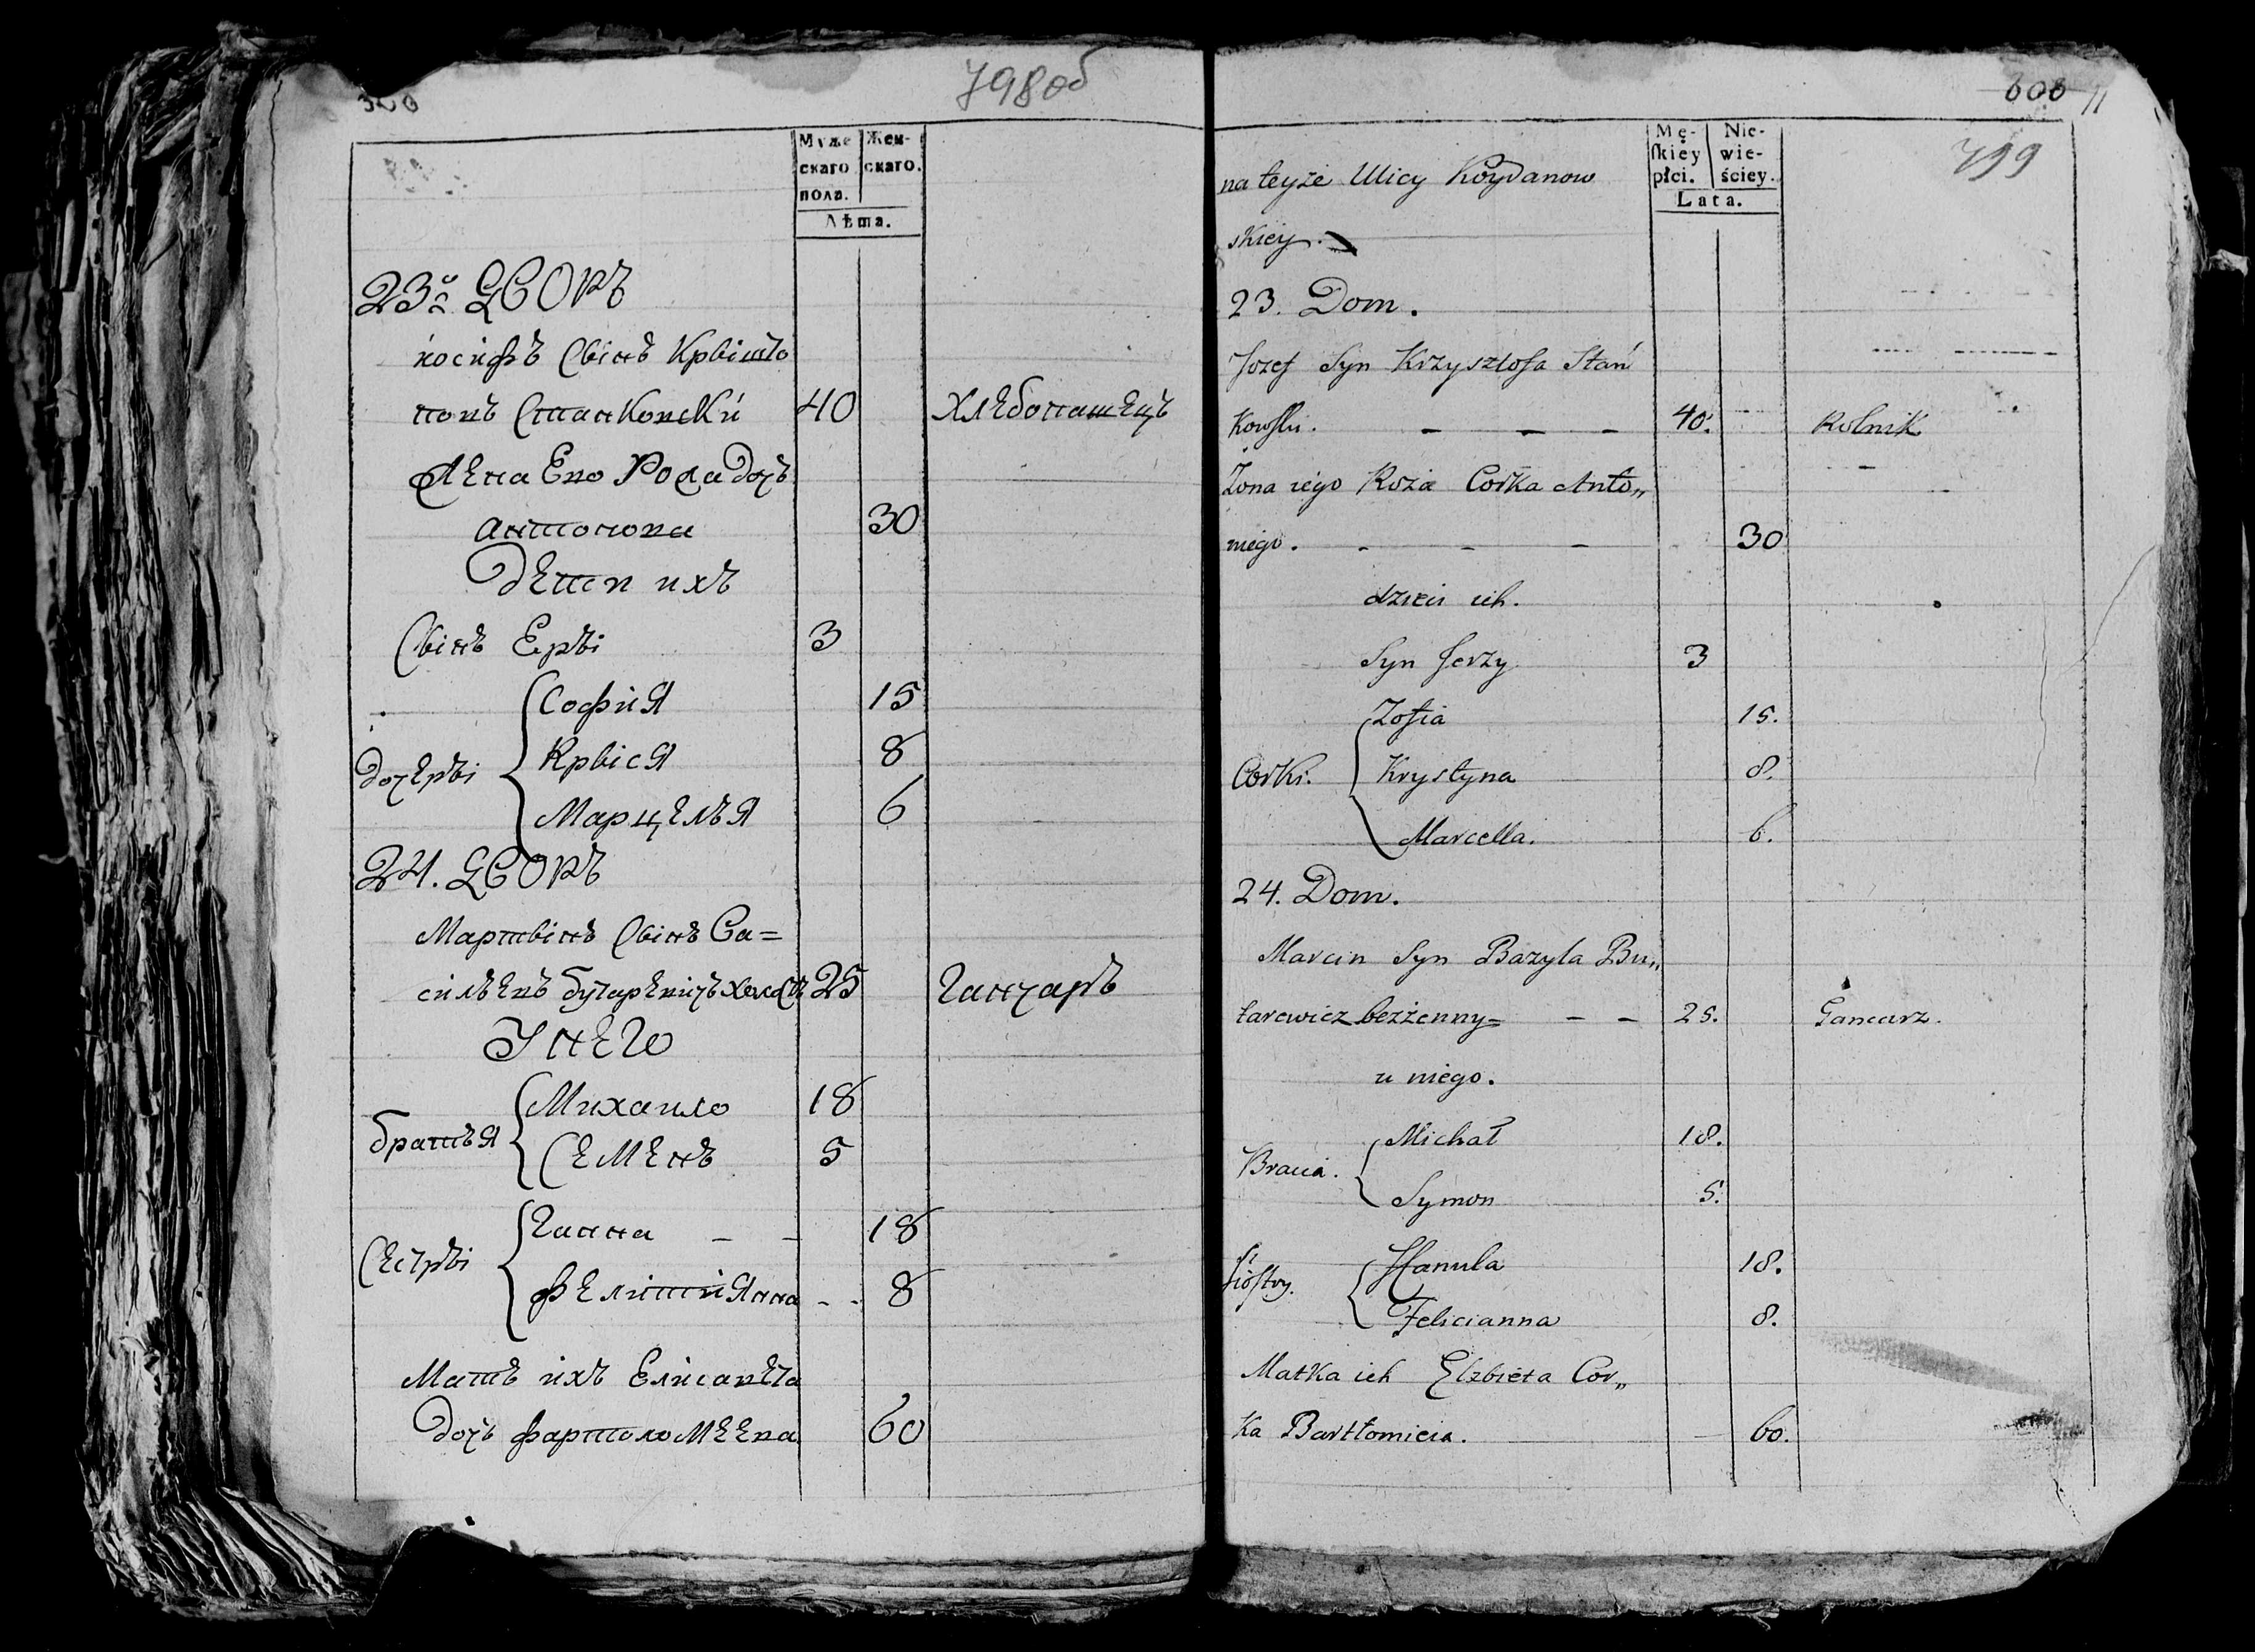 798об
Муже
скаго
пола.
Жен-
скаго.
Лѣта.
23й ДВОРЪ
Иосифъ Сынъ Крышто
повъ Станковски 40 Хлебопашецъ
Жена Ево Рожа дочъ
Антонова 30
Дети ихъ
Сынъ Еры 3
дочеры
София 15
Крыся 8
Марцелья 6
24. ДВОРЪ
Мартынъ Сынъ Ва=
сильевъ бутаревичъ холостъ 25 Ганчаръ
У него
братья
Михаило 18
Семенъ 5
Сестры
Ганна – – 18
Фелитиянна - - 8
Мать ихъ Елисавета
дочъ фартоломеева 60
608
11
799
Mę-
ſkiey
płci.
Nie-
wie-
ściey.
Lata.
na teyże Ulicy Koydanow
skiey.
23. Dom.
Jozef Syn Krzysztofa Stań
kowſki. – – – 40. Rolnik
Żona iego Roża Corka Anto„
niego. - - – 30
dzieci ich.
Syn Jerzy 3
Corki.
Zofia 15.
Krystyna 8.
Marcella. 6.
24. Dom.
Marcin Syn Bazyla Bu„
tarewicz bezżenny= – – 25. Gancarz.
u niego.
Bracia.
Michał 18.
Symon 5.
Sioſtry.
Hanula 18.
Felicianna 8.
Matka ich Elzbieta Cor„
ka Bartłomieia. 60.